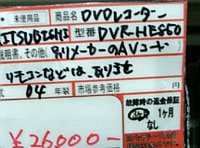 未使用品 商品名 DVDレコーダー
MITSUBISHI 型番 DVR-HE550
説明書、その他、 ありメーカーのAVコード
リモコンなどは、あります
式 04年 市場参考価格
故障時の返金保証
1ヶ月
なし
¥26000-